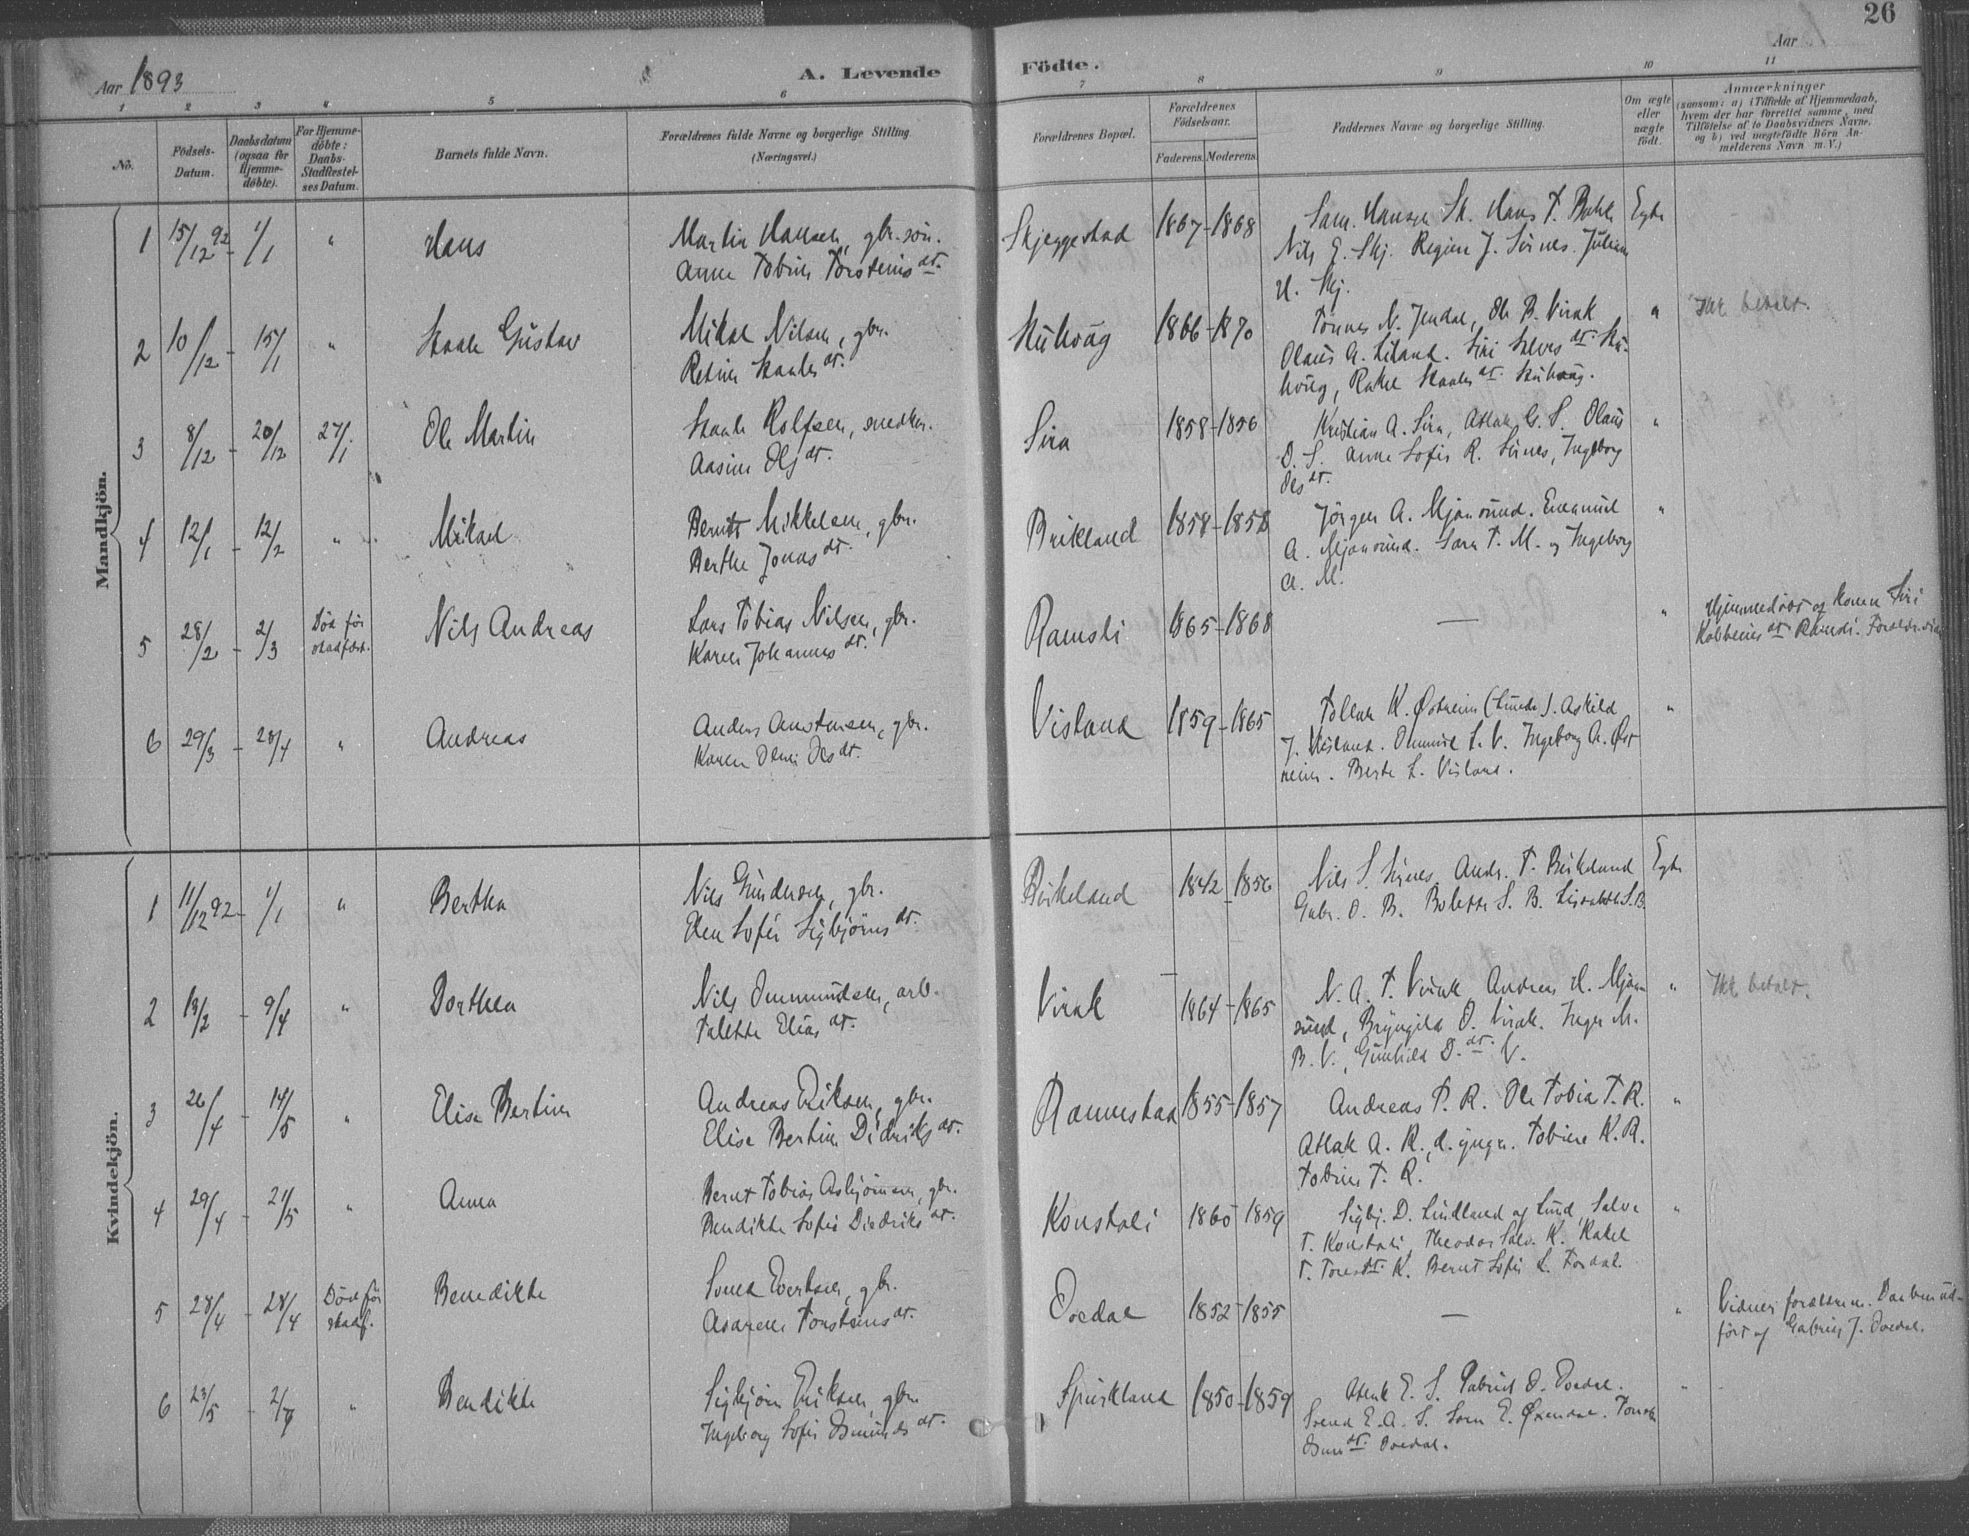 26
Aar 1893
A. Levende
Födte.
Aar
1 2 3 4 5 6 7 8 9 10 11
Nö.
Födsels-Datum.
Daabsdatum (ogsaa for Hjemme-döbte).
For Hjemme-döbte: Daabs-Stadfæstel-ses Datum.
Barnets fulde Navn.
Forældrenes fulde Navne og borgerlige Stilling.
(Næringsvei.)
Forældrenes Bopæl.
Forældrenes Födselsaar.
Faderens. Moderens.
Faddernes Navne og borgerlige Stilling.
Om ægte eller uægte födt.
Anmærkninger
(saasom: a) i Tilfælde af Hjemmedaab, hvem der har forrettet samme, med Tilföielse af to Daabsvidners Navne, og b) ved uægtefödte Börn An-melderens Navn m. V.)
Mandkjön.
1 15/12 92 - 1/1 " Hans
Martin Hansen, gbr. sön.
Anne Tobine Torsteins dt.
Skjeggestad 1867-1868
Sam. Hansen Sk. Hans T. Bakke
Nils E. Skj. Regine J. Sirnes. Juliane
H. Skj.
Egte
2 10/12 - 15/1 " Staale Gustav
Mikal Nilsen, gbr.
Retine Staales dt.
1866-1870
Tönnes N. Jendal, Ole B. Virak
Olaus A. Liland. Siri Salves dt.
Rakel Staales dt.
" Ikke betalt.
3 8/12 - 20/12 27/1 Ole Martin
Staale Rolfsen, snedker.
Aasine Ols dt.
Sira 1858-1856
Kristian A. Sira, Atlak G. S. Olaus
O. S. Anne Sofie R. Sirnes, Ingeborg
Ols dt.
"
4 12/1 - 12/2 " Mikael
Berntt Mikkelsen, gbr.
Berthe Jonas dt.
Birkland 1858-1858
Jörgen A. Mjaasund. Emanuel
A. Mjaasund. Sara T. M. og Ingeborg
A. M.
"
5 28/2 - 2/3 Död för stadfæst. Nils Andreas
Lars Tobias Nilsen, gbr.
Karen Johannes dt.
Ramsli 1865-1868
—
" Hjemmedöbt af Konen Siri
Kolbeins dt Ramsli.
6 29/3 - 28/4 " Andreas
Anders Aanstensen, gbr.
Karen Oline Ols dt.
Visland 1859-1865
Tollak K. Østreim (Lunde). Askild
J. Visland. Ommund L. V. Ingeborg A. Øst
reim. Berte L. Visland.
"
Kvindekjön.
1 11/12 92 - 1/1 " Bertha
Nils Gundersen, gbr.
Elen Sofie Sigbjörns dt.
Birkeland 1842-1856
Nils S. Sirnes, Andr. T. Birkeland
Gabr. O. B. Bolette S. B. Lisabeth S. B.
Egte
2 13/2 - 9/4 " Dorthea
Nils Ommundsen, arb.
Talette Elias dt.
Virak 1864-1865
N. A. T. Virak Andreas H. Mjaa-
sund, Bryngild O. Virak. Inger M.
B. V., Gunhild O. dt. V.
" Ikke betalt.
3 26/4 - 14/5 " Elise Bertine
Andreas Eriksen, gbr.
Elise Bertine Didriks dt.
Rannestad 1855-1857
Andreas P. R. Ole Tobias T. R.
Atlak A. R., d. yngr. Tobine K. R.
Tobine T. R.
"
4 29/4 - 21/5 " Anna
Bernt Tobias Asbjörnsen, gbr.
Bendikte Sofie Diedriks dt.
Konstali 1860-1859
Sigbj. D. Lindland og Lund, Salve
T. Konstali, Theodor Salv. K. Rakel
T. Tores dt. K. Bernt Sofie L. Fordal.
"
5 28/4 - 28/4 Död för stadf. Benedikte
Svend Evertsen, gbr.
Asarene Torsteins dt.
Ovedal 1852-1855
—
" Vidner forældrene. Daaben ud-
fört af Gabriel J. Ovedal.
6 23/5 - 2/7 " Bendikte
Sigbjörn Eriksen, gbr.
Ingeborg Sofie Osmunds dt.
Spirkland 1850-1859
Atlak E. S. Gabriel O. Ovedal.
Svend E. A. S. Sara E. Øxendal. Tonette
dt. Ovedal.
"